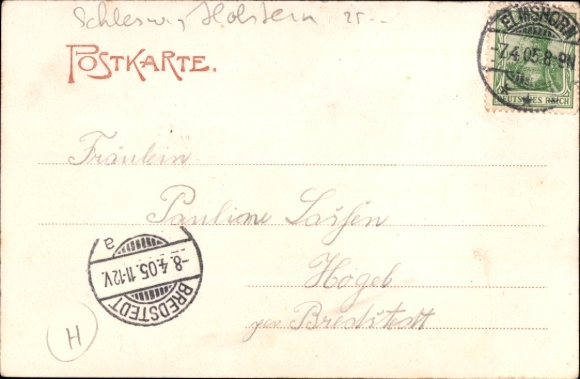 Schleswig Holstein
POSTKARTE.
ELMSHORN
-7.4.05.8-9N
DEUTSCHES REICH
Fräulein
Pauline
Högel
per Bredstedt
a
-8.4.05.11-12V.
BREDSTEDT
H